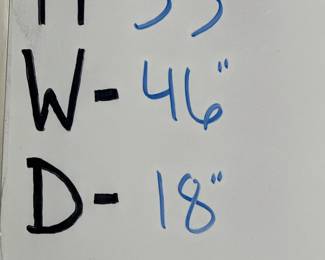 W- 46"
D- 18"